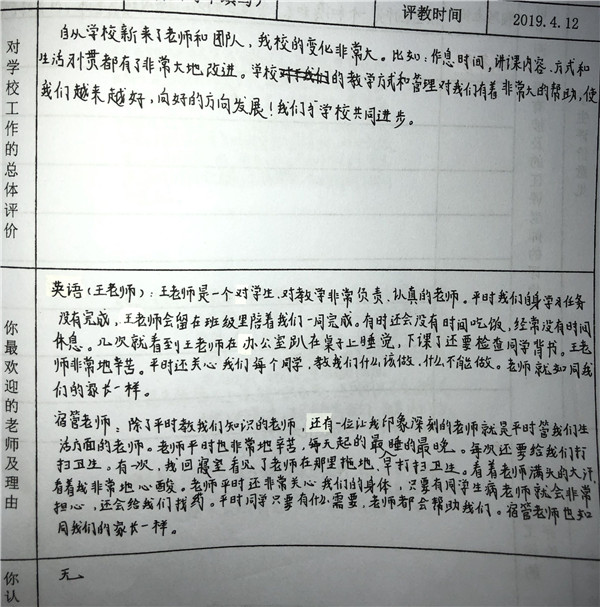 评教时间 2019.4.12
对学校工作的总体评价
自从学校新来了老师和团队，我校的变化非常大。比如：作息时间，讲课内容、方式和
生活习惯都有了非常大地改进。学校的教学方式和管理对我们有着非常大的帮助，使
我们越来越好，向好的方向发展！我们与学校共同进步。
你最欢迎的老师及理由
英语（王老师）：王老师是一个对学生、对教学非常负责、认真的老师。平时我们自身学习任务
没有完成，王老师会留在班级里陪着我们一同完成。有时还会没有时间吃饭，经常没有时间
休息。几次就看到王老师在办公室趴在桌子上睡觉，下课了还要检查同学背书。王老
师非常地辛苦。平时还关心我们每个同学，教我们什么该做，什么不能做。老师就如同我
们的家长一样。
宿管老师：除了平时教我们知识的老师，还有一位让我印象深刻的老师就是平时管我们生
活方面的老师。老师平时也非常地辛苦，每天起的最早睡的最晚。每次还要给我们打
扫卫生。有一次，我回寝室看见了老师在那里拖地，打扫卫生。看着老师满头的大汗，
看着我非常地心酸。老师平时还非常关心我们的身体，只要有同学生病老师就会非常
担心，还会给我们找药。平时同学只要有什么需要，老师都会帮助我们。宿管老师也如
同我们的家长一样。
你认
无